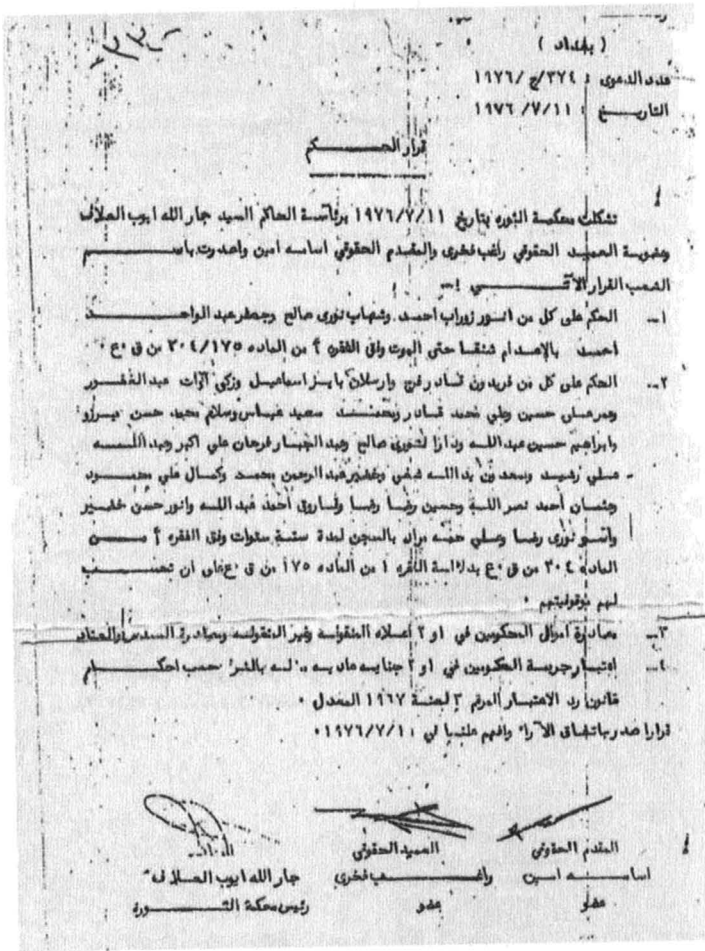 ( بغداد )
عدد الدعوى : ٣٧٤/ج/١٩٧٦
التاريــخ : ١٩٧٦/٧/١١
قرار الحــــكم
تشكلت محكمة الثوره بتاريخ ١٩٧٦/٧/١١ برئاســة الحاكم السيد جار الله ايوب العلاف
وعضوية العميد الحقوقي راغب فخرى والمقدم الحقوقي اسامه امين واصدرت باســـم
الشعب القرار الآتـــــي :ـ
١ـ الحكم على كل من انــور زوراب احمد وشهاب نورى صالح وجعفر عبد الواحـــد
احمد بالاعدام شنقا حتى الموت وفق الفقره أ من الماده ٢٠٤/١٧٥ من ق ٠ع ٠
٢ـ الحكم على كل من فريدون قادر فرج وارسلان بايز اسماعيل وزكي عبد الغفــور
وعمر علي حسين وعلي محمد قــادر ومحمــد سعيد عباس وسلام محمد حسن ميرزو
وابراهيم حسين عبد اللــه ودارا نورى صالح وعبد الجبار فرحان علي اكبر وعبد اللــه
علي رشيد وسعدون وخضير عبد الرحمن محمد وكمال علي محمــود
وعثمان أحمد نصر اللــه وحسين رضا رضا وفاروق أحمد عبد اللــه وانور حسن خضير
نورى رضا وعلي حمه مراد بالسجن لمدة ستــة سنوات وفق الفقره أ مــــن
الماده ٢٠٤ من ق ٠ع بدلالــة الفقره ١ من الماده ١٧٥ من ق ٠ع على ان تحســــب
لهم موقوفيتهم ٠
٣ـ مصادرة اموال المحكومين في ١ و ٢ اعلاه المنقولــه وغير المنقولــه ومصادرة المسدس والعتاد
٤ـ اعتبار جريمــة المحكومين في ١ و ٢ جنايــه عاديــه بالشرف حسب احكــــام
قانون رد الاعتبار المرقم ٣ لسنــة ١٩٦٧ المعدل ٠
قرارا صدر باتفاق الآراء وافهم علنــا في ١٩٧٦/٧/١١٠
المقدم الحقوقي
اسامـــه امين
عضو
العميد الحقوقي
راغــــب فخرى
عضو
جار الله ايوب العــلاف
رئيس محكمة الثــــورة